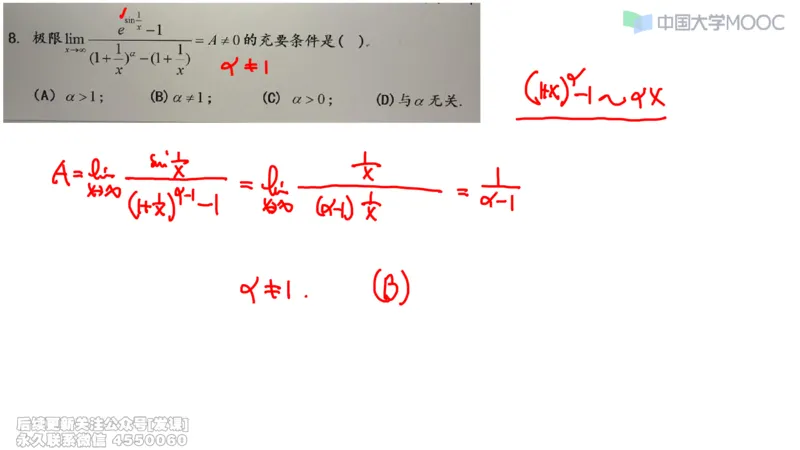 中国大学MOOC
8. 极限 lim_{x→∞} (e^{sin 1/x} − 1) / ((1+1/x)^α − (1+1/x)) = A ≠ 0 的充要条件是( ).
α ≠ 1
(A) α>1; (B) α≠1; (C) α>0; (D) 与α无关.
(1+x)^α − 1 ~ αx
A = lim_{x→∞} (sin 1/x) / ((1+1/x)^{α−1} − 1) = lim_{x→∞} (1/x) / ((α−1) 1/x) = 1/(α−1)
α ≠ 1. (B)
后续更新关注公众号[发课]
永久联系微信 4550060